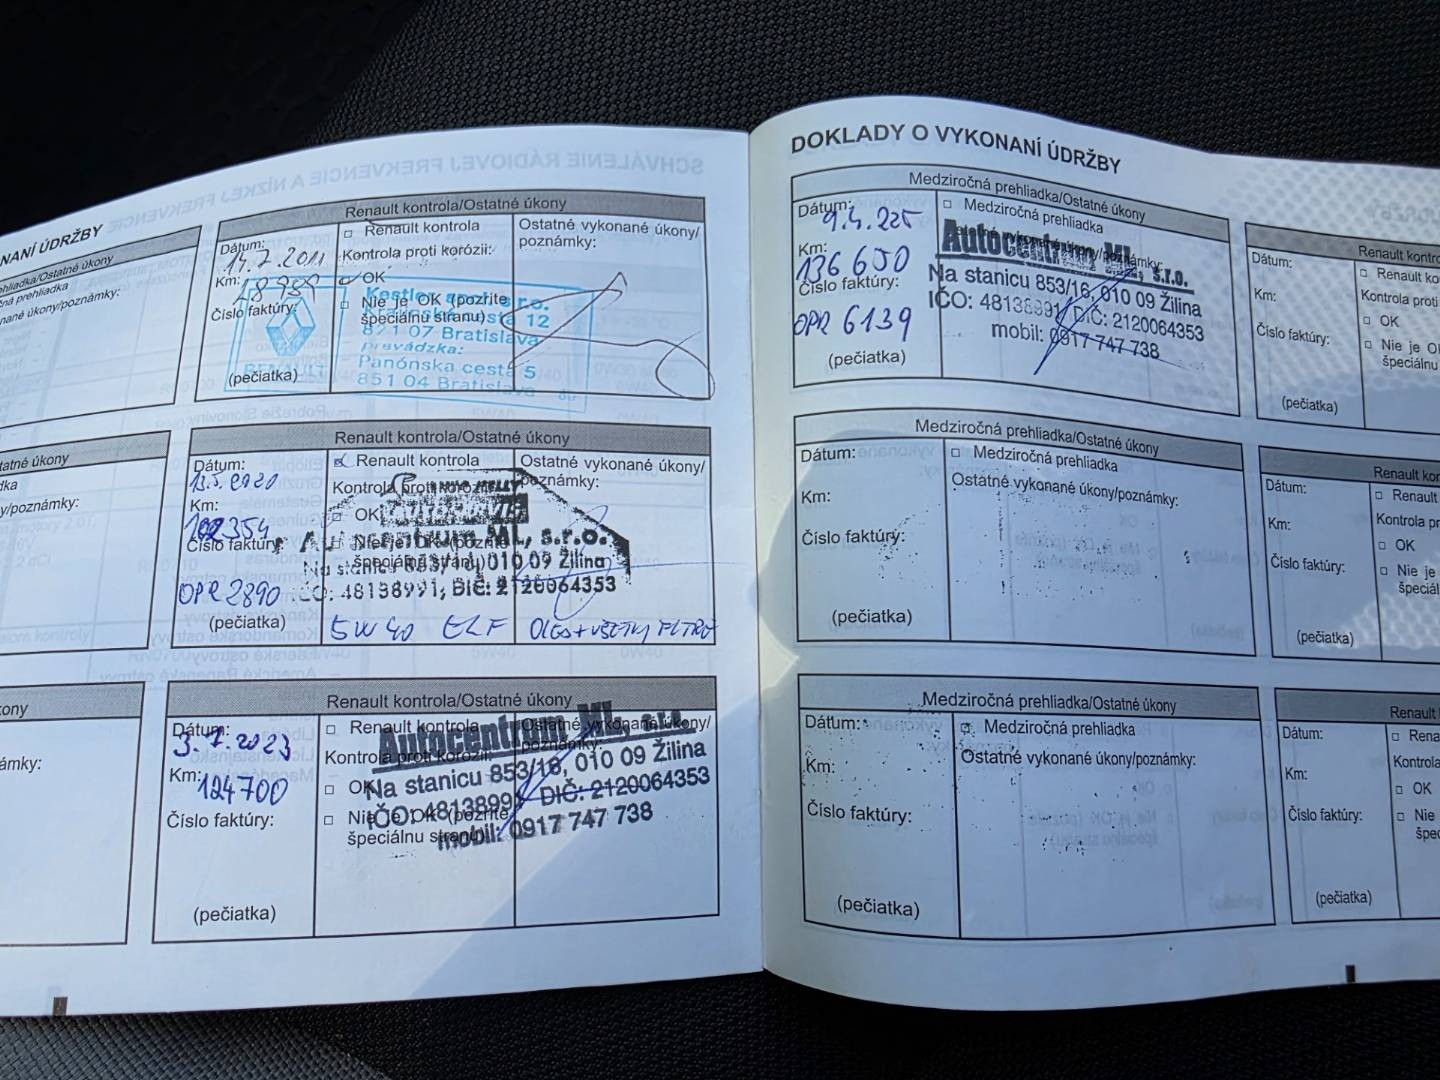 NANÍ ÚDRŽBY
hliadka/Ostatné úkony
ná prehliadka
nané úkony/poznámky:
tatné úkony
dka
ny/poznámky:
kony
ámky:
SCHVÁLENIE RÁDIOVEJ FREKVENCIE A NÍZKEJ FREKVENCIE
Renault kontrola/Ostatné úkony
Dátum:
Renault kontrola
Ostatné vykonané úkony/
poznámky:
Kontrola proti korózii:
Km:
OK
Číslo faktúry:
Nie je OK (pozrite
špeciálnu stranu)
(pečiatka)
RENAULT
s.r.o.
12
821 07 Bratislava
prevádzka:
Panónska cesta 5
851 04 Bratislava
Renault kontrola/Ostatné úkony
Dátum:
13.5.2020
Km:
102354
Číslo faktúry:
OPR 2890
(pečiatka)
Renault kontrola
Ostatné vykonané úkony/
poznámky:
Kontrola proti
OK
Nie je OK (pozrite
špeciálnu stranu)
Autocentrum ML, s.r.o.
Na stanicu 853/16, 010 09 Žilina
IČO: 48138991, DIČ: 2120064353
5W40 ELF
OLEJ+VŠETKY FILTRE
Renault kontrola/Ostatné úkony
Dátum:
3.7.2023
Km:
124700
Číslo faktúry:
(pečiatka)
Renault kontrola
Ostatné vykonané úkony/
poznámky:
Kontrola proti korózii:
OK
Nie je OK (pozrite
špeciálnu stranu)
Autocentrum ML, s.r.o.
Na stanicu 853/16, 010 09 Žilina
IČO: 48138991 DIČ: 2120064353
mobil: 0917 747 738
DOKLADY O VYKONANÍ ÚDRŽBY
Medziročná prehliadka/Ostatné úkony
Dátum:
9.4.225
Km:
136 650
Číslo faktúry:
OPR 6139
(pečiatka)
Medziročná prehliadka
Ostatné vykonané úkony/poznámky:
Autocentrum ML, s.r.o.
Na stanicu 853/16, 010 09 Žilina
IČO: 48138991 DIČ: 2120064353
mobil: 0917 747 738
Medziročná prehliadka/Ostatné úkony
Dátum:
Medziročná prehliadka
Ostatné vykonané úkony/poznámky:
Km:
Číslo faktúry:
(pečiatka)
Medziročná prehliadka/Ostatné úkony
Dátum:
Medziročná prehliadka
Km:
Ostatné vykonané úkony/poznámky:
Číslo faktúry:
(pečiatka)
Renault kontro
Dátum:
Renault ko
Km:
Kontrola proti
OK
Číslo faktúry:
Nie je OK
špeciálnu
(pečiatka)
Renault kon
Dátum:
Renault
Km:
Kontrola p
OK
Číslo faktúry:
Nie je
špeciál
(pečiatka)
Renault
Dátum:
Rena
Km:
Kontrola
OK
Číslo faktúry:
Nie
špec
(pečiatka)